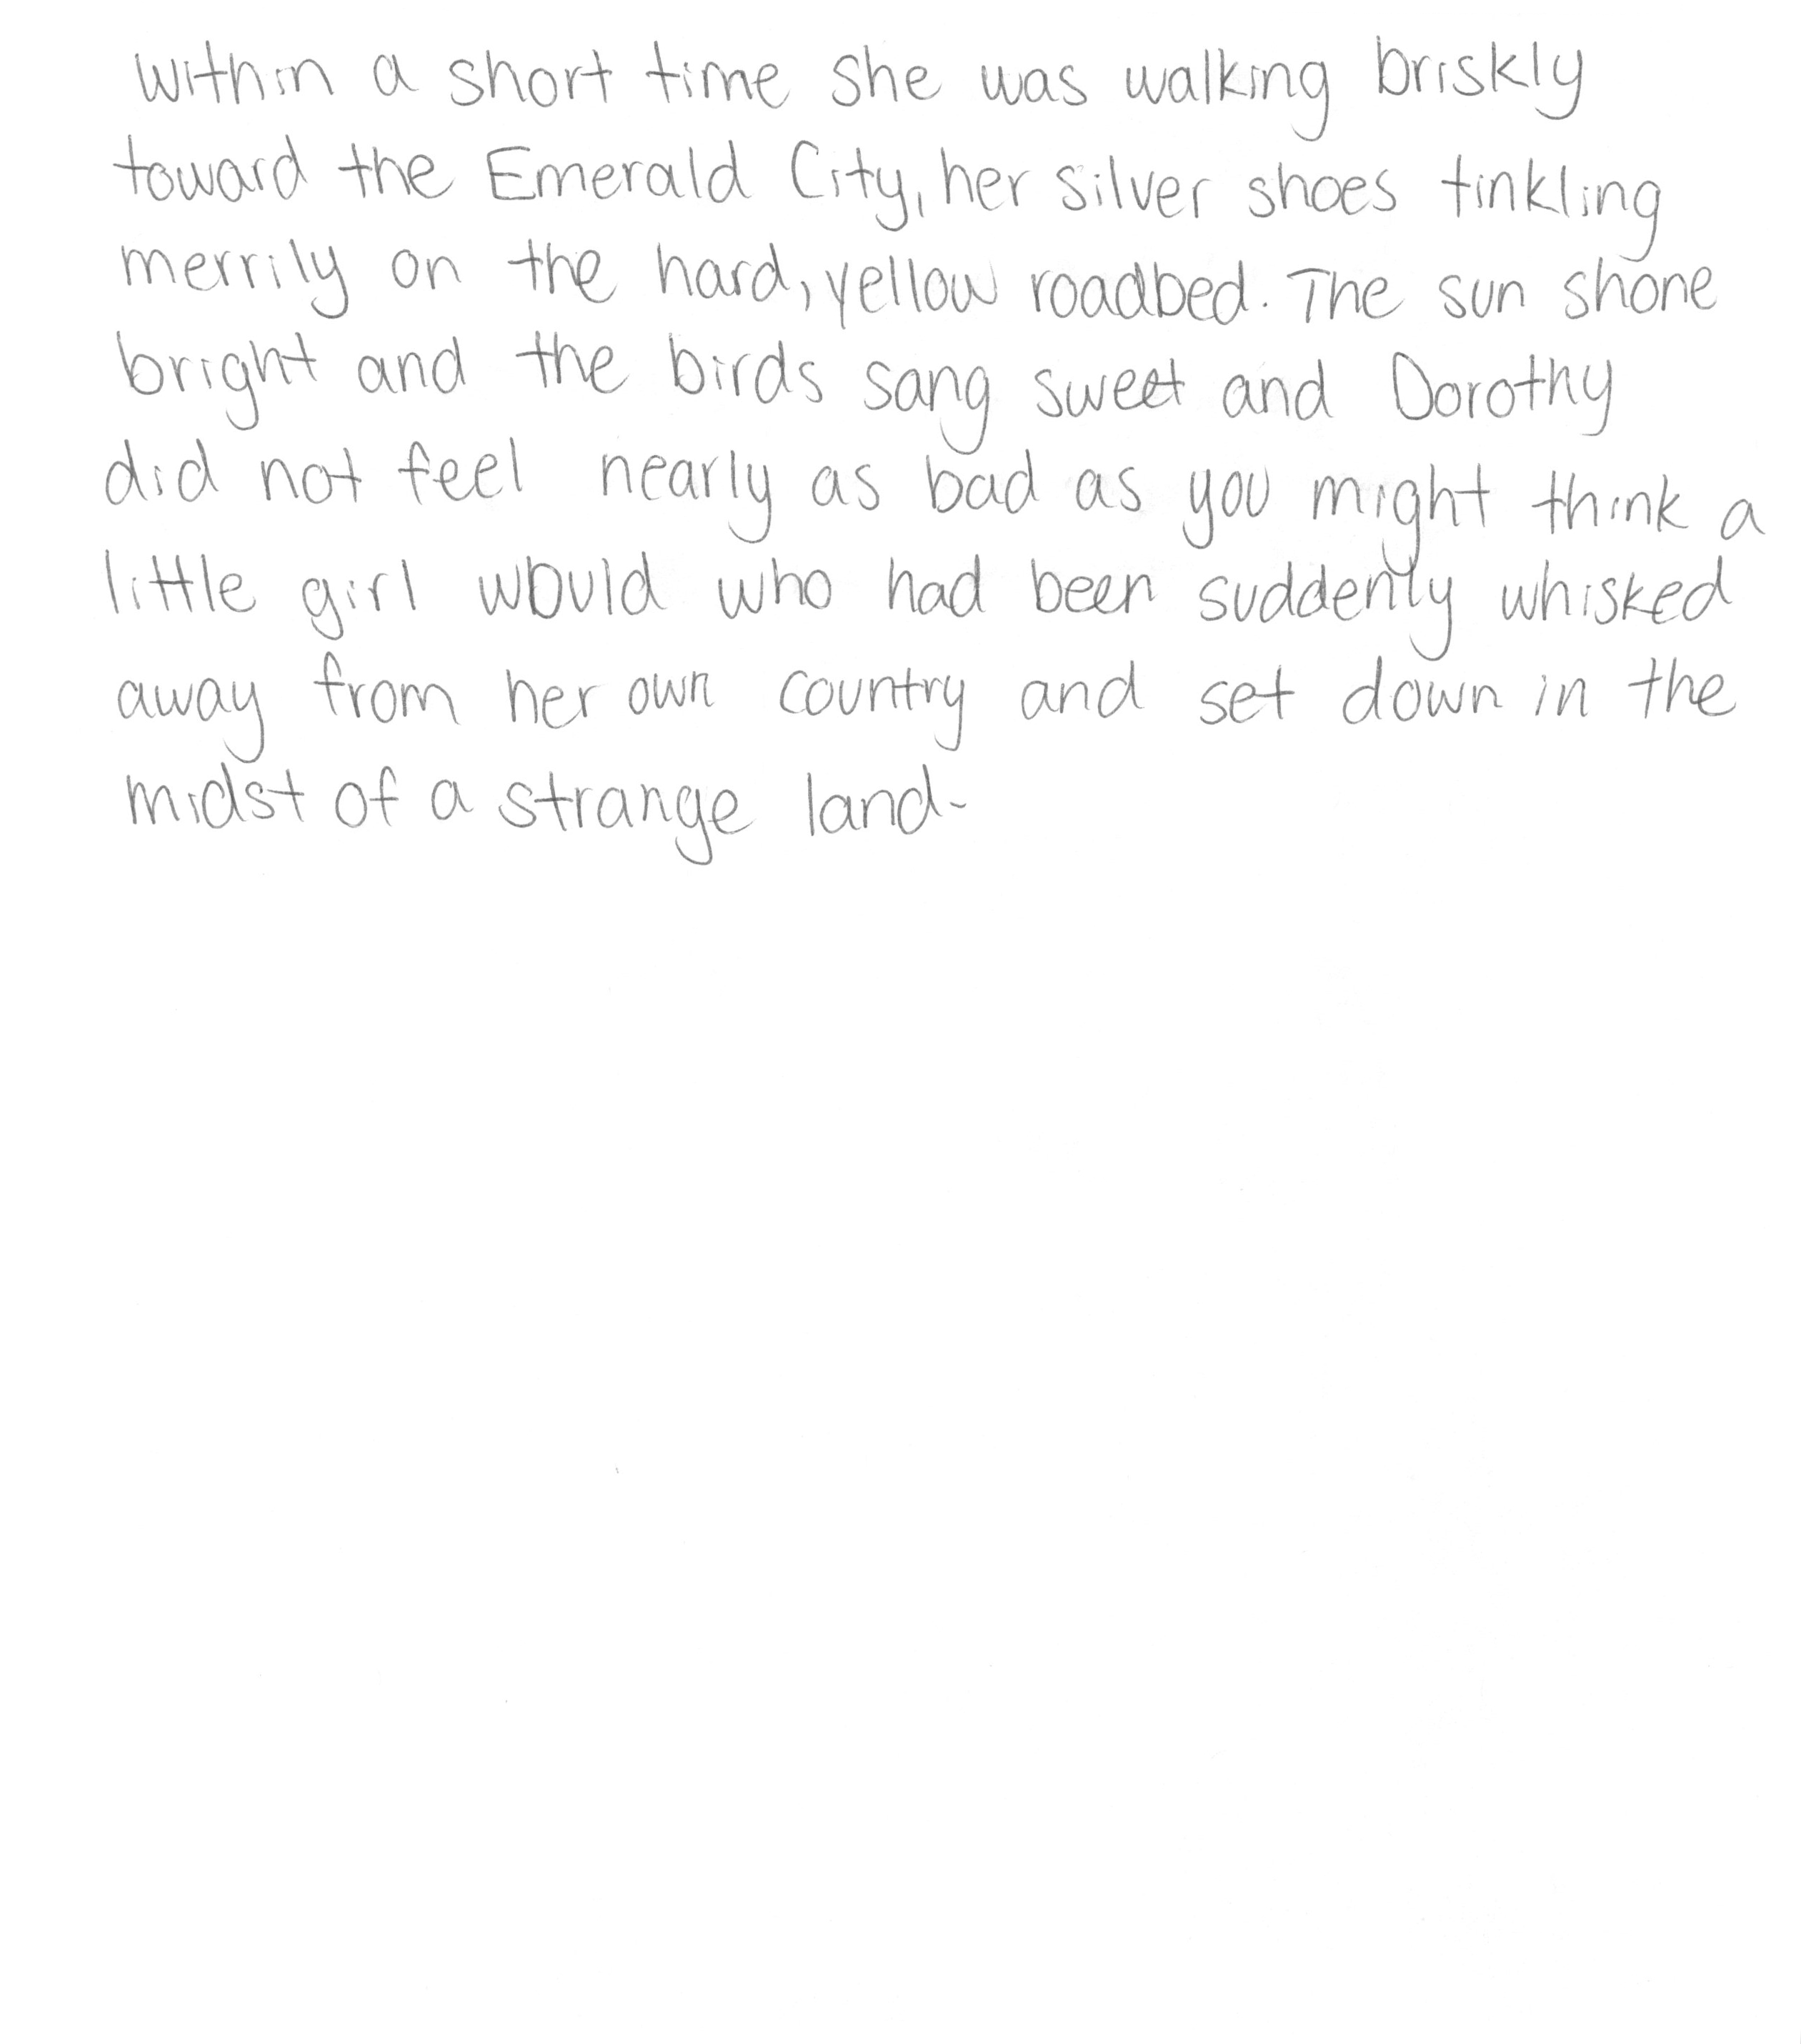 Within a short time she was walking briskly
toward the Emerald City, her silver shoes tinkling
merrily on the hard, yellow roadbed. The sun shone
bright and the birds sang sweet and Dorothy
did not feel nearly as bad as you might think a
little girl would who had been suddenly whisked
away from her own country and set down in the
midst of a strange land-